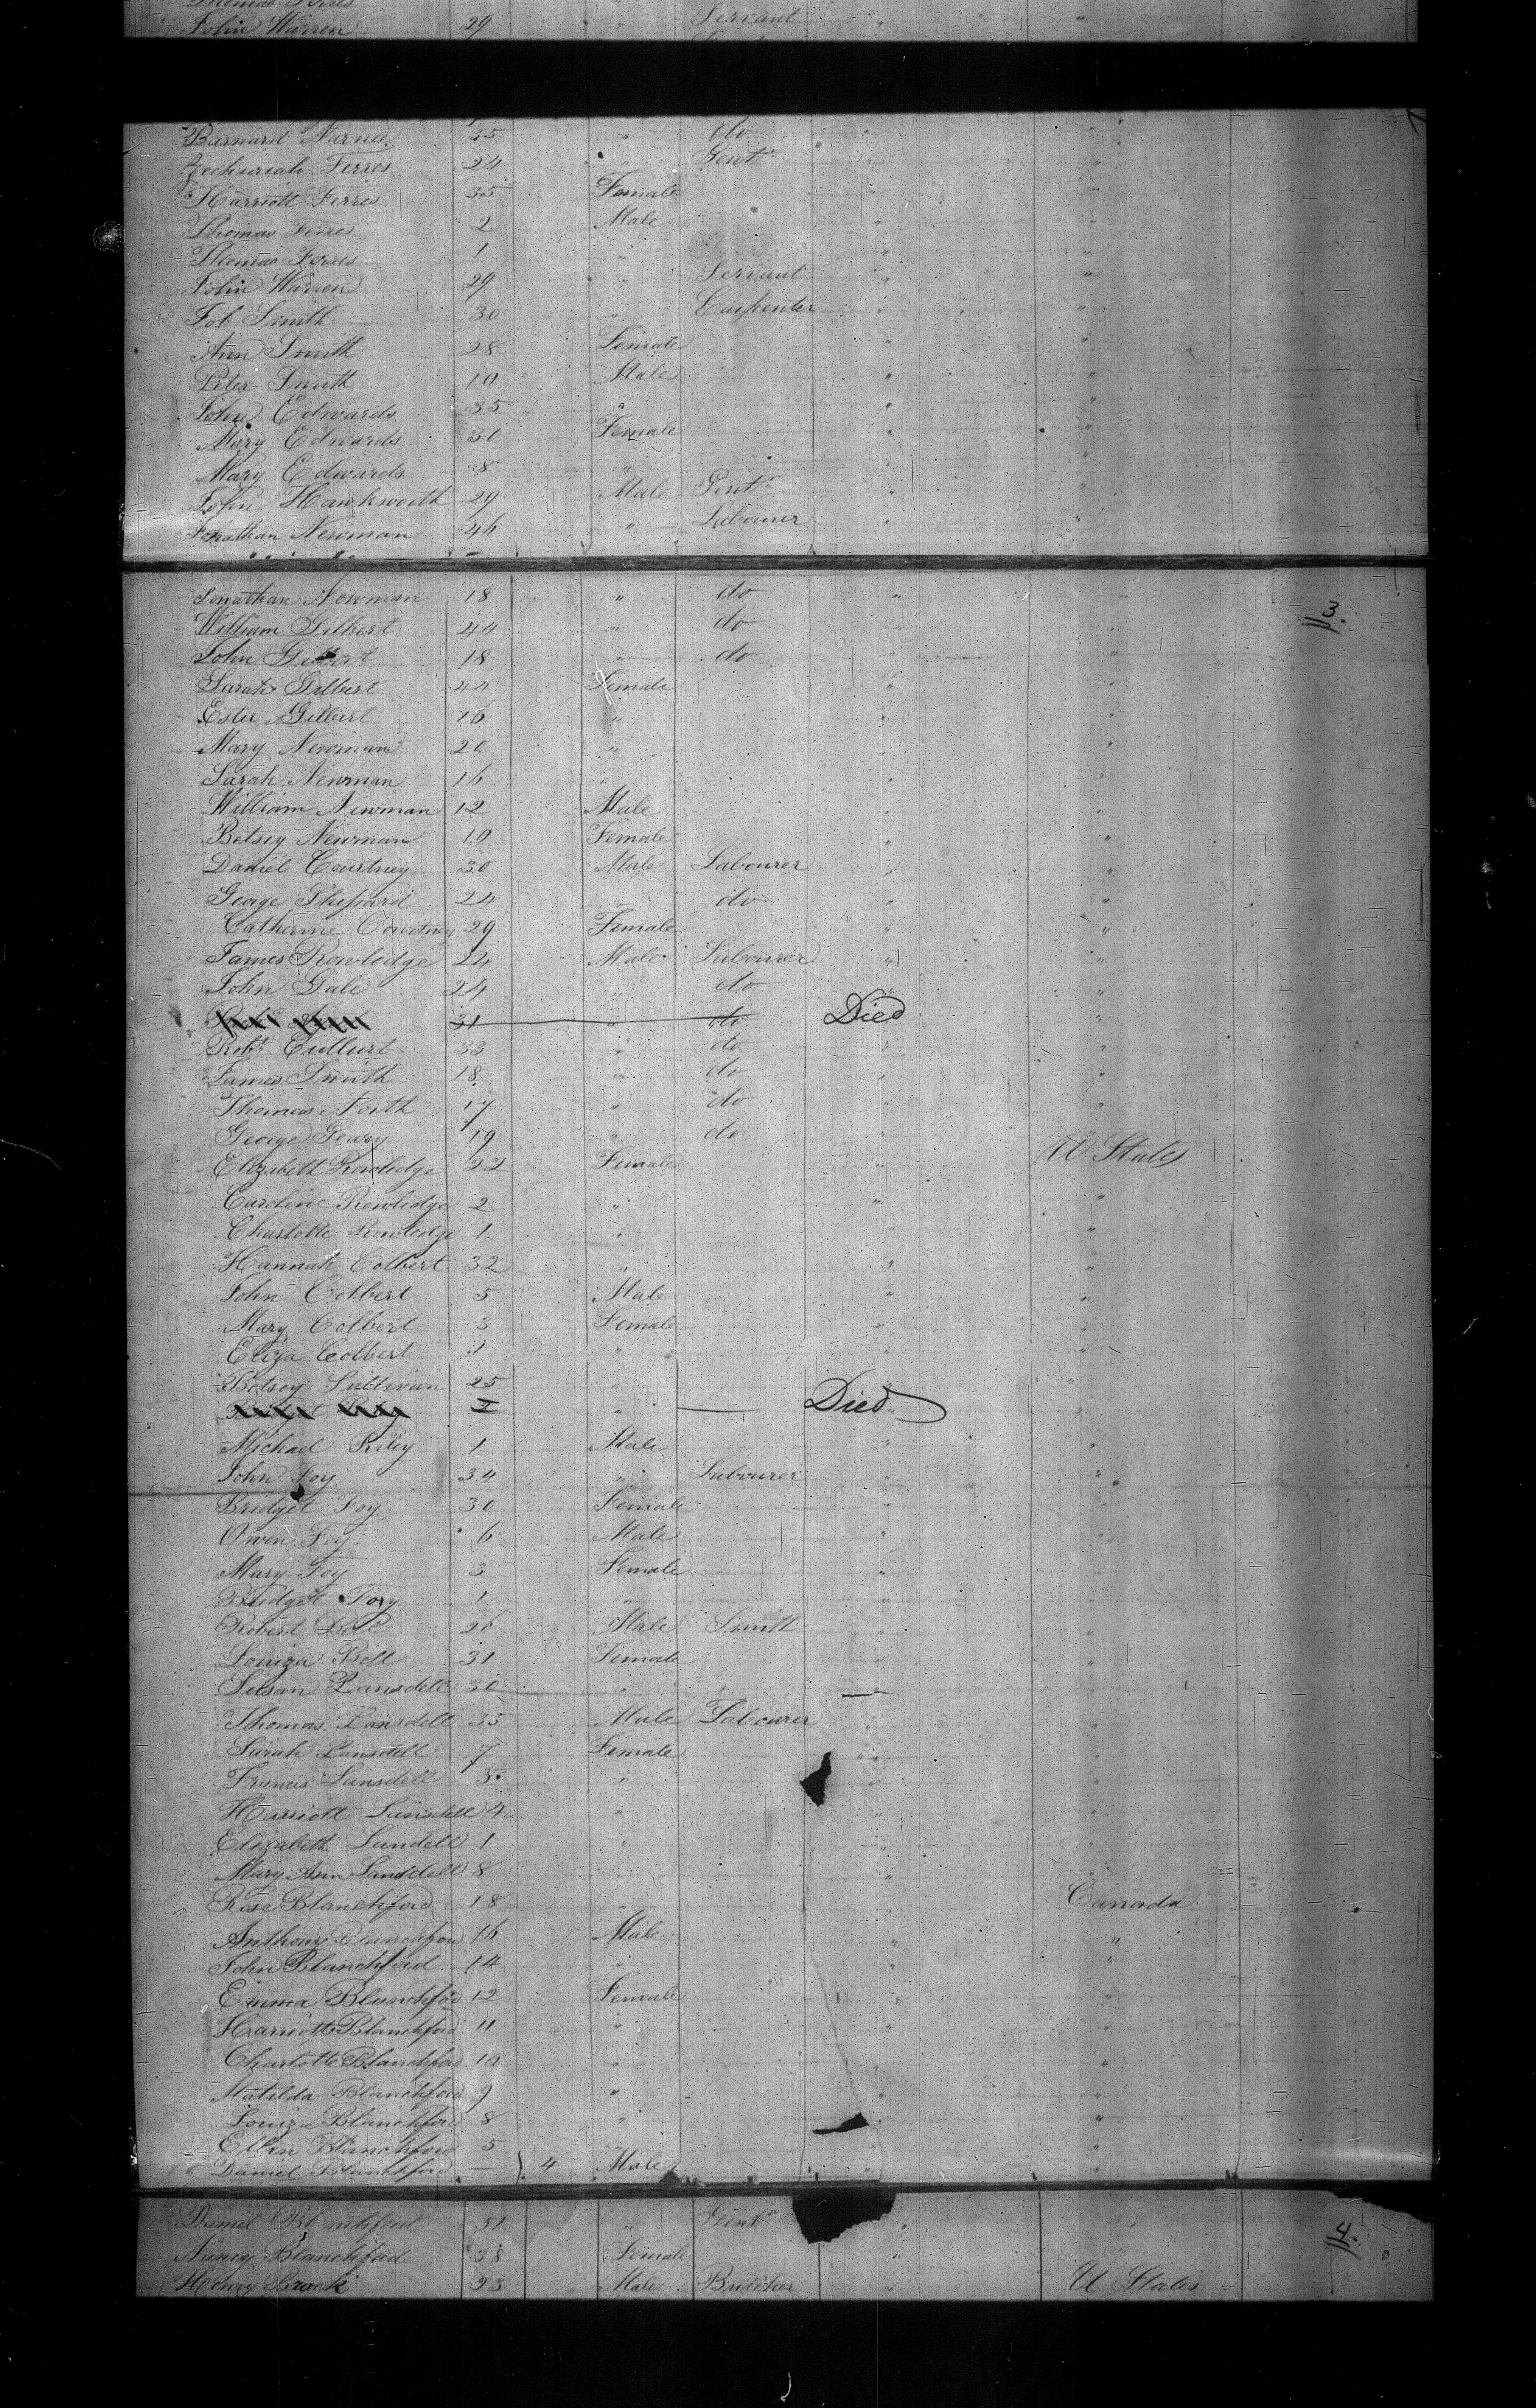 John Warren 29 Servant "
Bernard 35 " do " "
Zechariah Ferres 24 " Gent " "
Harriott Ferres 35 Female " "
Thomas Ferres 2 Male " "
Thomas Ferres 1 " " "
John Warren 29 " Servant " "
Job Smith 30 " Carpenter " "
Ann Smith 28 Female " "
Peter Smith 10 Male " "
John Edwards 35 " " "
Mary Edwards 30 Female " "
Mary Edwards 8 " " "
John Hawkworth 29 Male Gent " "
Jonathan Newman 46 " Labourer " "
Jonathan Newman 18 " do " "
3.
William Gilbert 44 " do " "
John Gilbert 18 " do " "
Sarah Gilbert 44 Female " "
Ester Gilbert 16 " " "
Mary Newman 20 " " "
Sarah Newman 16 " " "
William Newman 12 Male " "
Betsey Newman 10 Female " "
Daniel Courtney 30 Male Labourer " "
George Sheppard 24 " do " "
Catherine Courtney 29 Female " "
James Rowledge 24 Male Labourer " "
John Gale 24 " do " "
31 " do Died "
Robt 33 " do " "
James Smith 18 " do " "
Thomas North 17 " do " "
George Geary 19 " do "
Elizabeth Rowledge 22 Female " U States
Caroline Rowledge 2 " " "
Charlotte Rowledge 1 " "
Hannah Colbert 32 " " "
John Colbert 5 Male " "
Mary Colbert 3 Female " "
Eliza Colbert 1 " " "
Betsey Sullivan 25 " "
" Died "
Michael Riley 1 Male " "
John Foy 34 " Labourer " "
Bridget Foy 30 Female " "
Owen Foy 6 Male " "
Mary Foy 3 Female " "
Bridget Foy 1 " " "
Robert Bell 26 Male Smith " "
Louiza Bell 31 Female " "
Susan Lansdell 30 " " "
Thomas Lansdell 35 Male Labourer " "
Sarah Lansdell 7 Female " "
Francis Lansdell 5 " "
Harriott Lansdell 4 " " "
Elizabeth Landell 1 " " "
Mary Ann Lansdell 8 " " "
Rose Blanchford 18 " " Canada
Anthony Blanchford 16 Male " "
John Blanchford 14 " " "
Emma Blanchford 12 Female " "
Harriott Blanchford 11 " " "
Charlotte Blanchford 10 " "
Matilda Blanchford 9 " " "
Louiza Blanchford 8 " "
Ellen Blanchford 5 " "
Daniel Blanchford - 4 Male " "
Daniel Blanchford 51 " Gent " "
4.
Nancy Blanchford 38 Female " "
Henry Brock 23 Male Butcher " U States